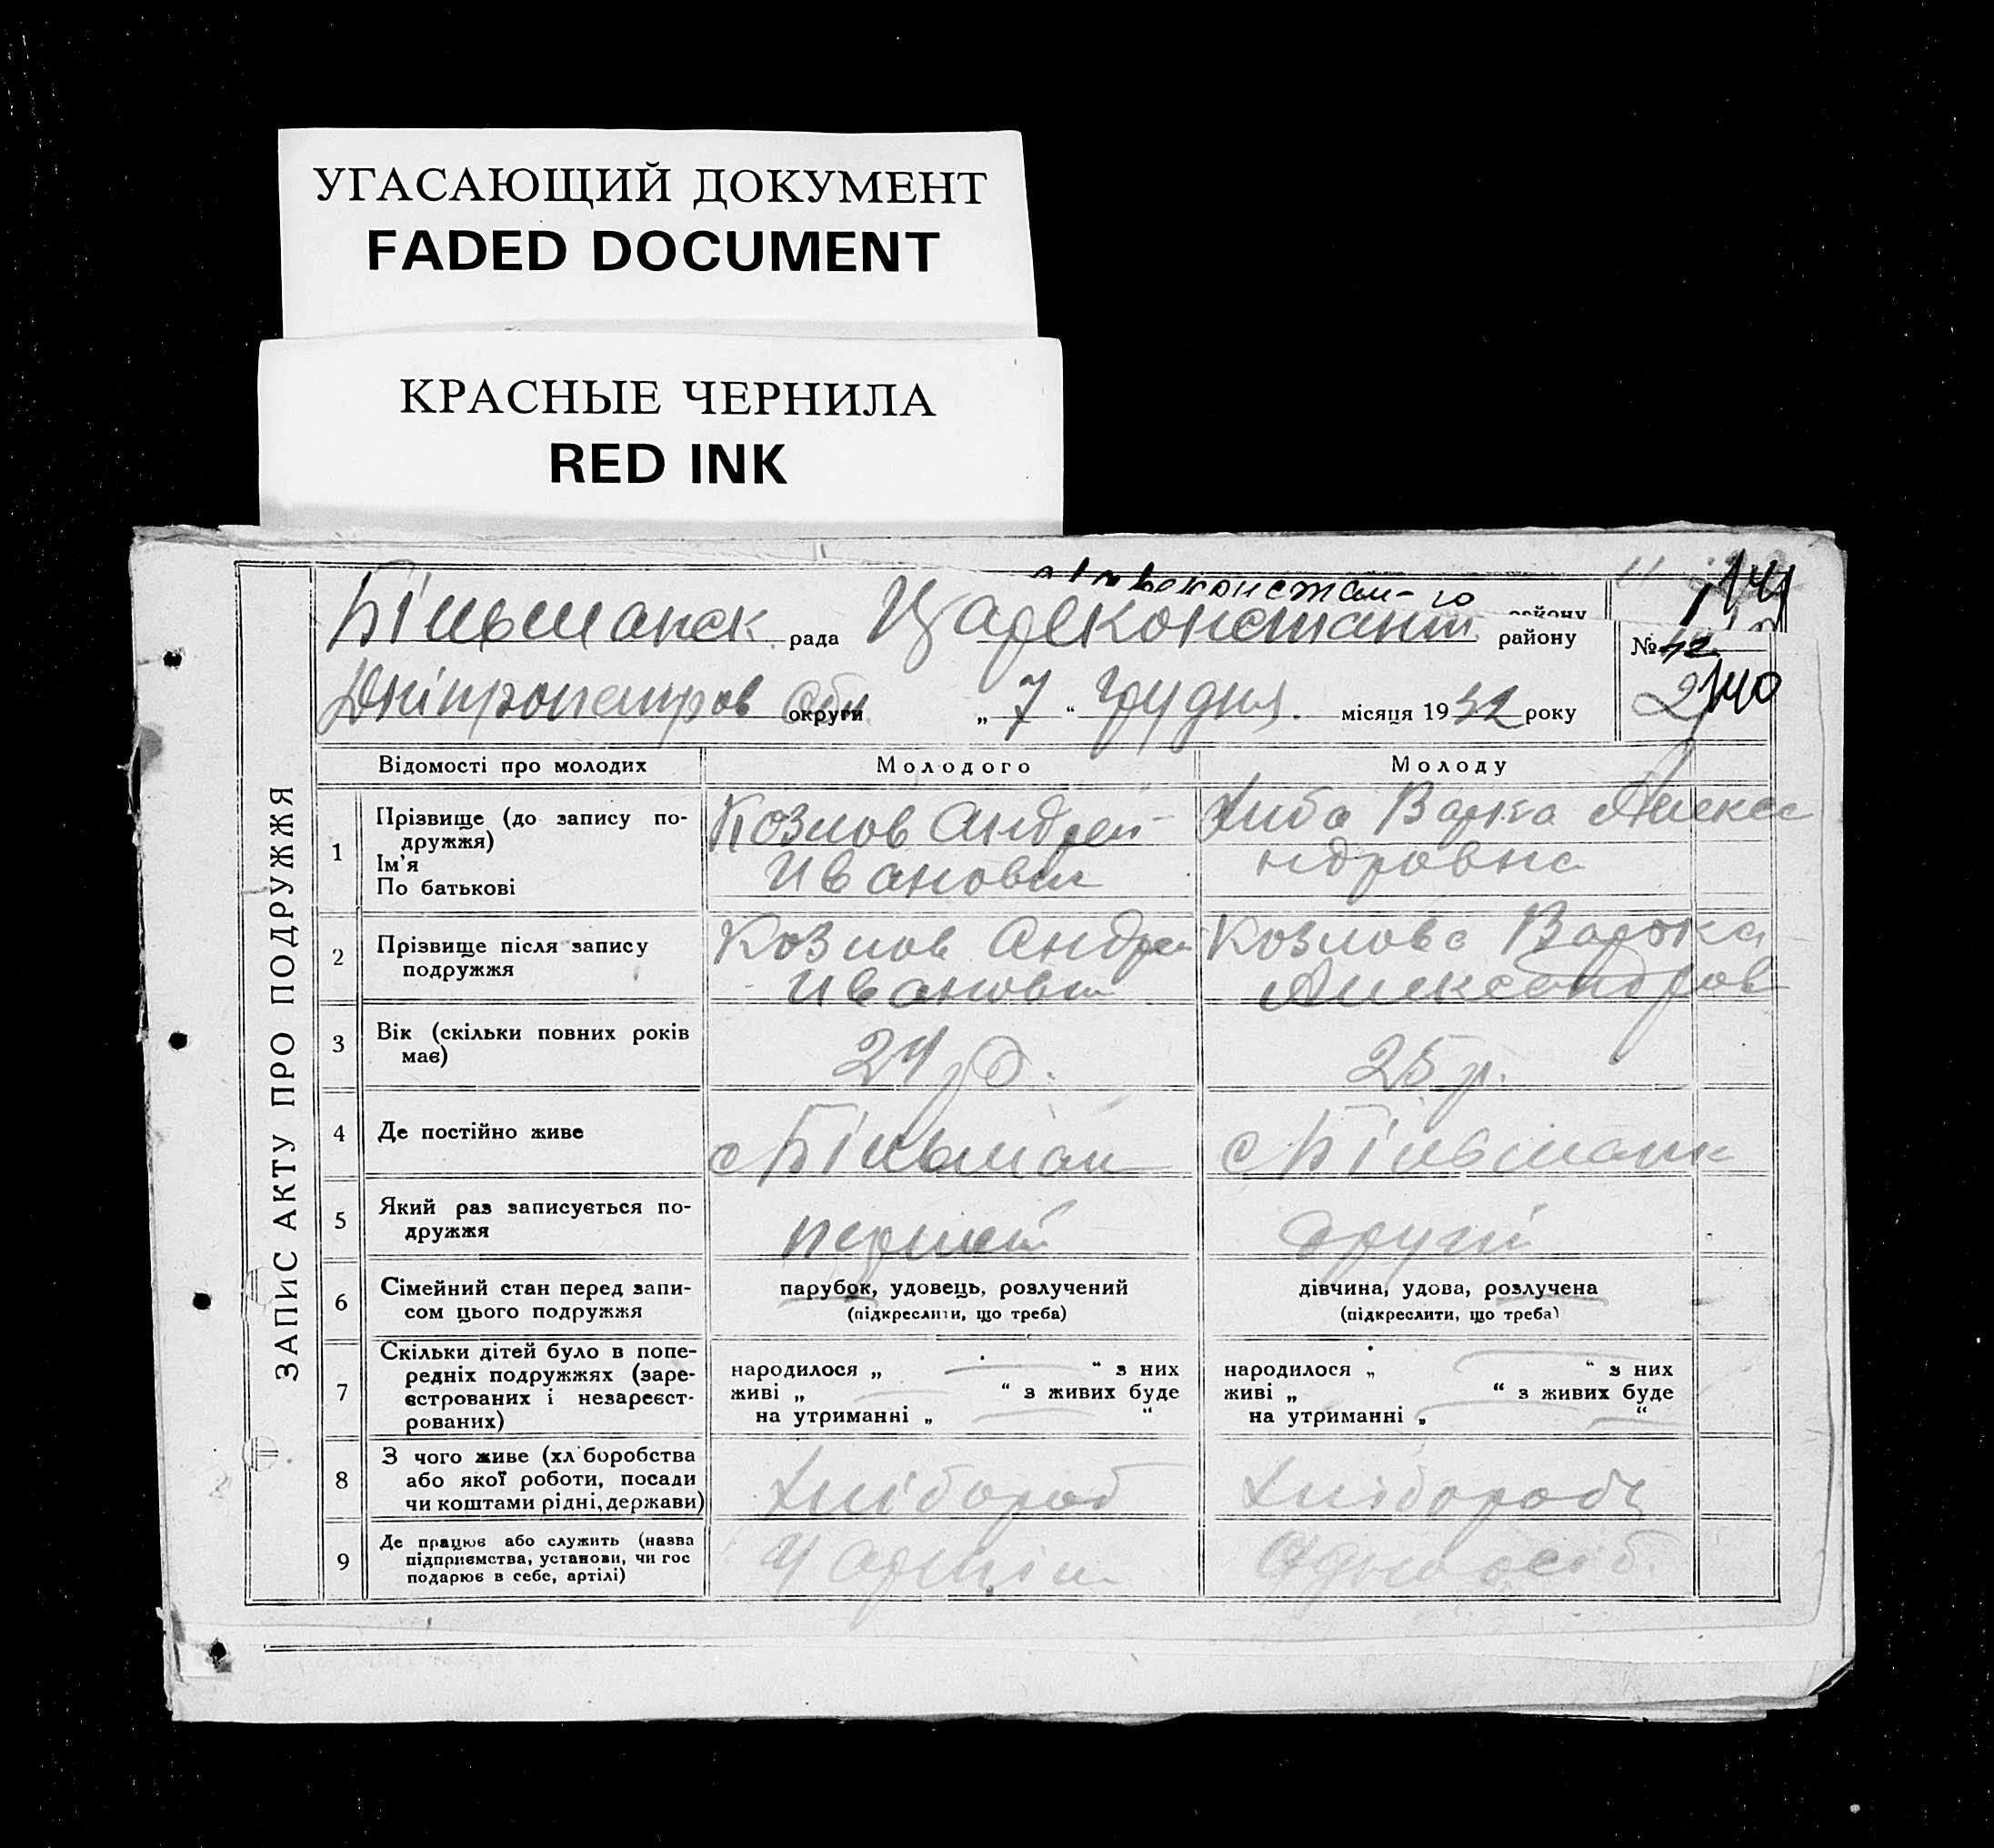 УГАСАЮЩИЙ ДОКУМЕНТ
FADED DOCUMENT
КРАСНЫЕ ЧЕРНИЛА
RED INK
району
Більманск рада Цареконстант району
№ 42
Дніпропетров Обл округи „ 7 “ грудня місяця 1932 року
ЗАПИС АКТУ ПРО ПОДРУЖЖЯ
Відомості про молодих Молодого Молоду
1 Прізвище (до запису по-
дружжя)
Ім'я
По батькові
Козлов Андрей
Ивановы
Хиба Варка Алекса
ндровна
2 Прізвище після запису
подружжя
Козлов Андрей
Ивановы
Козлова Варка
Александров
3 Вік (скільки повних років
має)
24 р. 25 р.
4 Де постійно живе с Більман с Більманк
5 Який раз записується по-
дружжя
першей другій
6 Сімейний стан перед запи-
сом цього подружжя
парубок, удовець, розлучений
(підкреслити, що треба)
дівчина, удова, розлучена
(підкреслити, що треба)
7 Скільки дітей було в попе-
редніх подружжях (заре-
єстрованих і незареєст-
рованих)
народилося „ — “ з них
живі „ — “ з живих буде
на утриманні „ — “
народилося „ — “ з них
живі „ — “ з живих буде
на утриманні „ — “
8 З чого живе (хл боробства
або якої роботи, посади
чи коштами рідні, держави)
Хлібороб Хлібороб
9 Де працює або служить (назва
підприємства, установи, чи гос
подарює в себе, артілі)
У артілі Одноосіб.